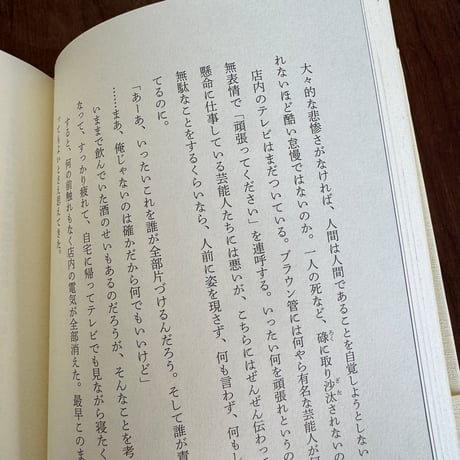 大々的な悲惨さがなければ、人間は人間であることを自覚しようとしない
れないほど酷い怠慢ではないのか。一人の死など、碌に取り沙汰されないの
店内のテレビはまだついている。ブラウン管には何やら有名な芸能人が
無表情で「頑張ってください」を連呼する。いったい何を頑張れというの
懸命に仕事している芸能人たちには悪いが、こちらにはぜんぜん伝わっ
無駄なことをするくらいなら、人前に姿を現さず、何も言わず、何も
てるのに。
「あーあ、いったいこれを誰が全部片づけるんだろう。そして誰が責
……まあ、俺じゃないのは確かだから何でもいいけど」
いままで飲んでいた酒のせいもあるのだろうが、そんなことを考
なって、すっかり疲れて、自宅に帰ってテレビでも見ながら寝たく
すると、何の前触れもなく店内の電気が全部消えた。最早このま
ってもよいとさえ思えてきた。